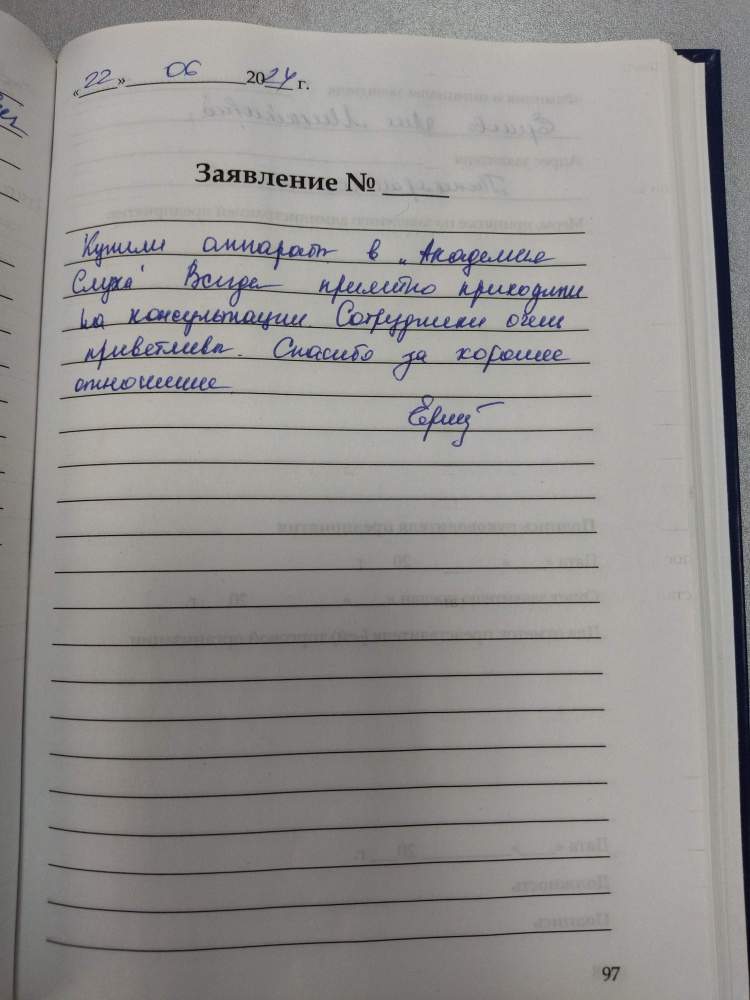 «22» 06 2024 г.
Заявление № _____
Купили аппарат в „Академие
Слуха" Всегда приятно приходити
на консультации. Сотрудники очен
приветливы. Спасибо за хорошее
отношение
97